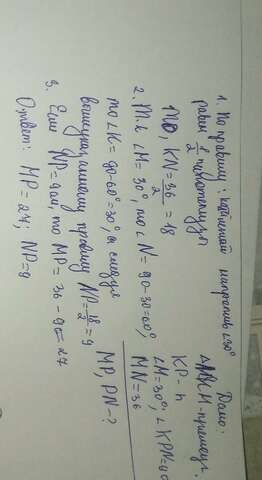 Дано:
△MKN - прямоуг.
KP - h
∠M=30°; ∠KPN=90
MN=36
MP, PN - ?
1. По правилу: катет напротив ∠30°
равен 1/2 гипотенузы
KN = 36/2 = 18
2. Т.к ∠M=30°, то ∠N=90-30=60°,
то ∠K=90-60=30°, а следуя
вышеуказанному правилу NP=18/2=9
3. Если NP=9см, то MP=36-9=27
Ответ: MP=27; NP=9